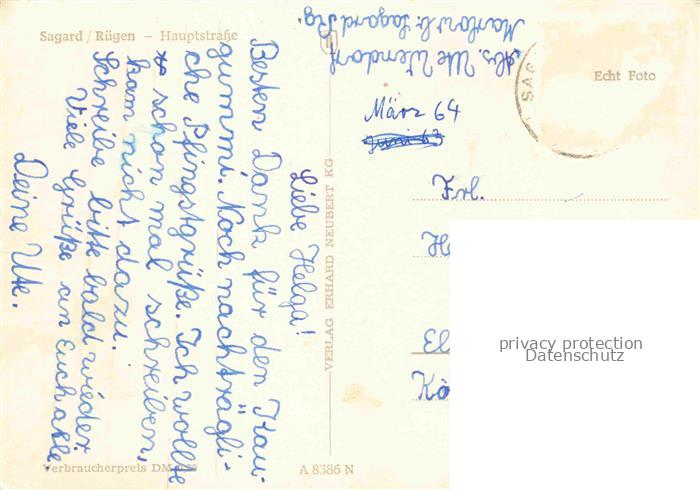 Sagard / Rügen – Hauptstraße
Liebe Helga!
Besten Dank für den Kau-
gummi. Noch nachträgli-
che Pfingstgrüße. Ich wollte
schon mal schreiben,
kam nicht dazu.
Schreibe bitte bald wieder.
Viele Grüße an Euch alle
Deine Ute.
Abs. Ute Wendorf
Marlow b. Sagard Rg.
März 64
Juni 63
Echt Foto
SAG
Frl.
H
El
Kö
VERLAG ERHARD NEUBERT KG
Verbraucherpreis DM
A 8386 N
privacy protection
Datenschutz